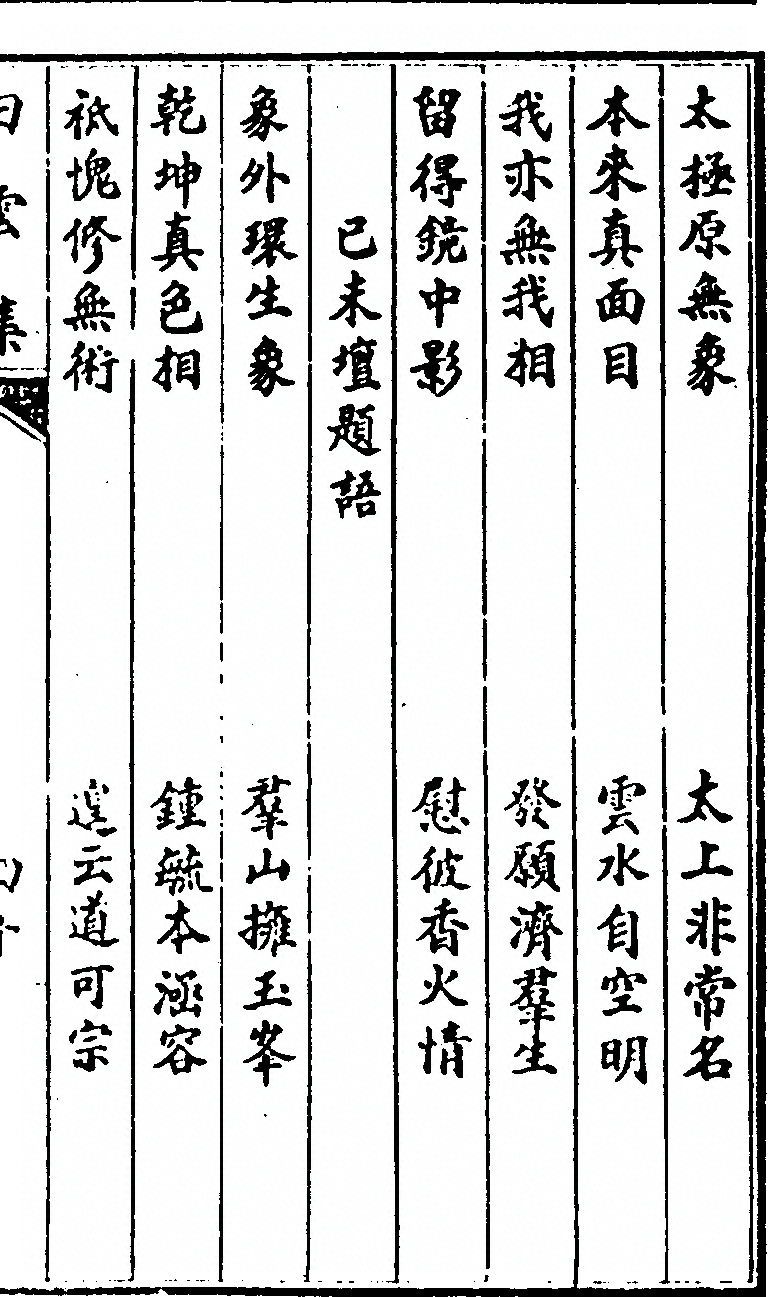 太極原無象　太上非常名
本來真面目　雲水自空明
我亦無我相　發願濟羣生
留得鏡中影　慰彼香火情
己未壇題語
象外環生象　羣山擁玉峯
乾坤真色相　鍾毓本涵容
祇愧修無術　遑云道可宗
白雲集